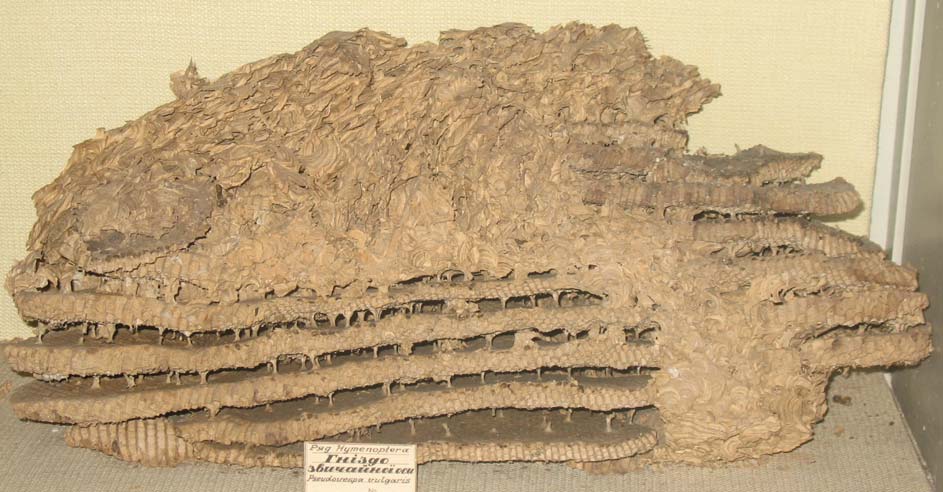 Ряд Hymenoptera
Гніздо
звичайної оси
Pseudovespa vulgaris